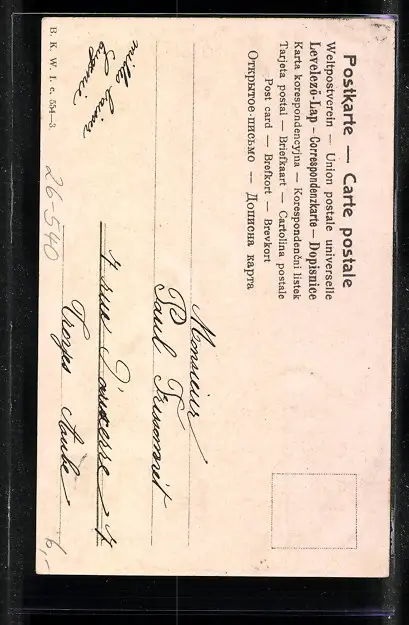 Postkarte — Carte postale
Weltpostverein — Union postale universelle
Levelező-Lap — Correspondenzkarte — Dopisnice
Karta korespondencyjna — Korespondenční listek
Tarjeta postal — Briefkaart — Cartolina postale
Post card — Brefkort — Brevkort
Открытое-письмо — Дописна карта
Monsieur
Paul
7 rue 7
Troyes Aube
mille
B. K. W. I. c. 554—3.
26-540
6,-